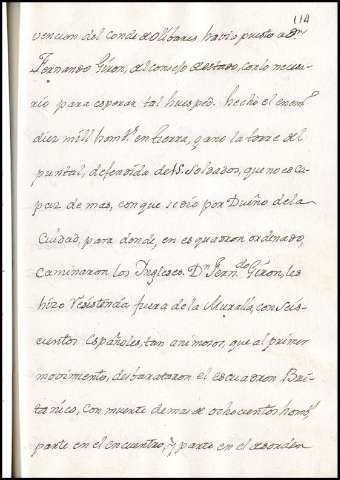 114
vencion del Conde de olibares havia puesto a Dn
Fernando Giron, del consejo de estado, con lo necesa-
rio para esperar tal huesped. hechó el enemo
diez mill homs. en tierra, ganó la torre del
puntal, defendida de 15. soldados, que no es ca-
paz de mas, con que se dio por Dueño de la
Ciudad, para donde, en esquadron ordenado,
Caminaron los Ingleses. Dn. Ferndo Giron, les
hizo resistencia fuera de la Muralla, con seis-
cientos españoles, tan animosos, que al primer
movimiento, desbarataron el escuadron Bri-
tanico, con muerte de mas de ochocientos homs.
parte en el encuentro, y parte en el desorden